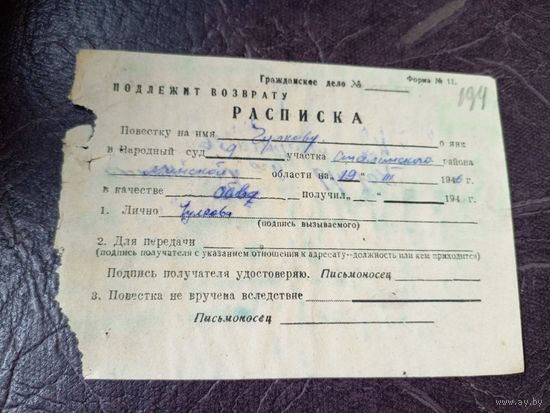 Гражданское дело № Форма № 11.
ПОДЛЕЖИТ ВОЗВРАТУ
194
РАСПИСКА
Повестку на имя Чулкову о явк
в Народный суд 9 участка Сталинского района
Минской области на "19" III 1946 г.
в качестве получил „ “ 194 г.
1. Лично Чулкова
(подпись вызываемого)
2. Для передачи
(подпись получателя с указанием отношения к адресату--должность или кем приходится)
Подпись получателя удостоверяю. Письмоносец
3. Повестка не вручена вследствие
Письмоносец
www.ay.by